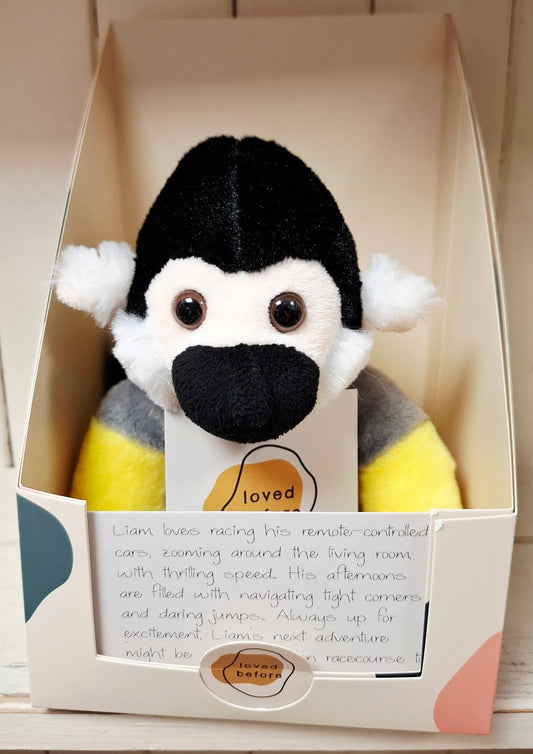 loved
before
Liam loves racing his remote-controlled
cars, zooming around the living room
with thrilling speed. His afternoons
are filled with navigating tight corners
and daring jumps. Always up for
excitement, Liam's next adventure
might be racecourse
loved
before